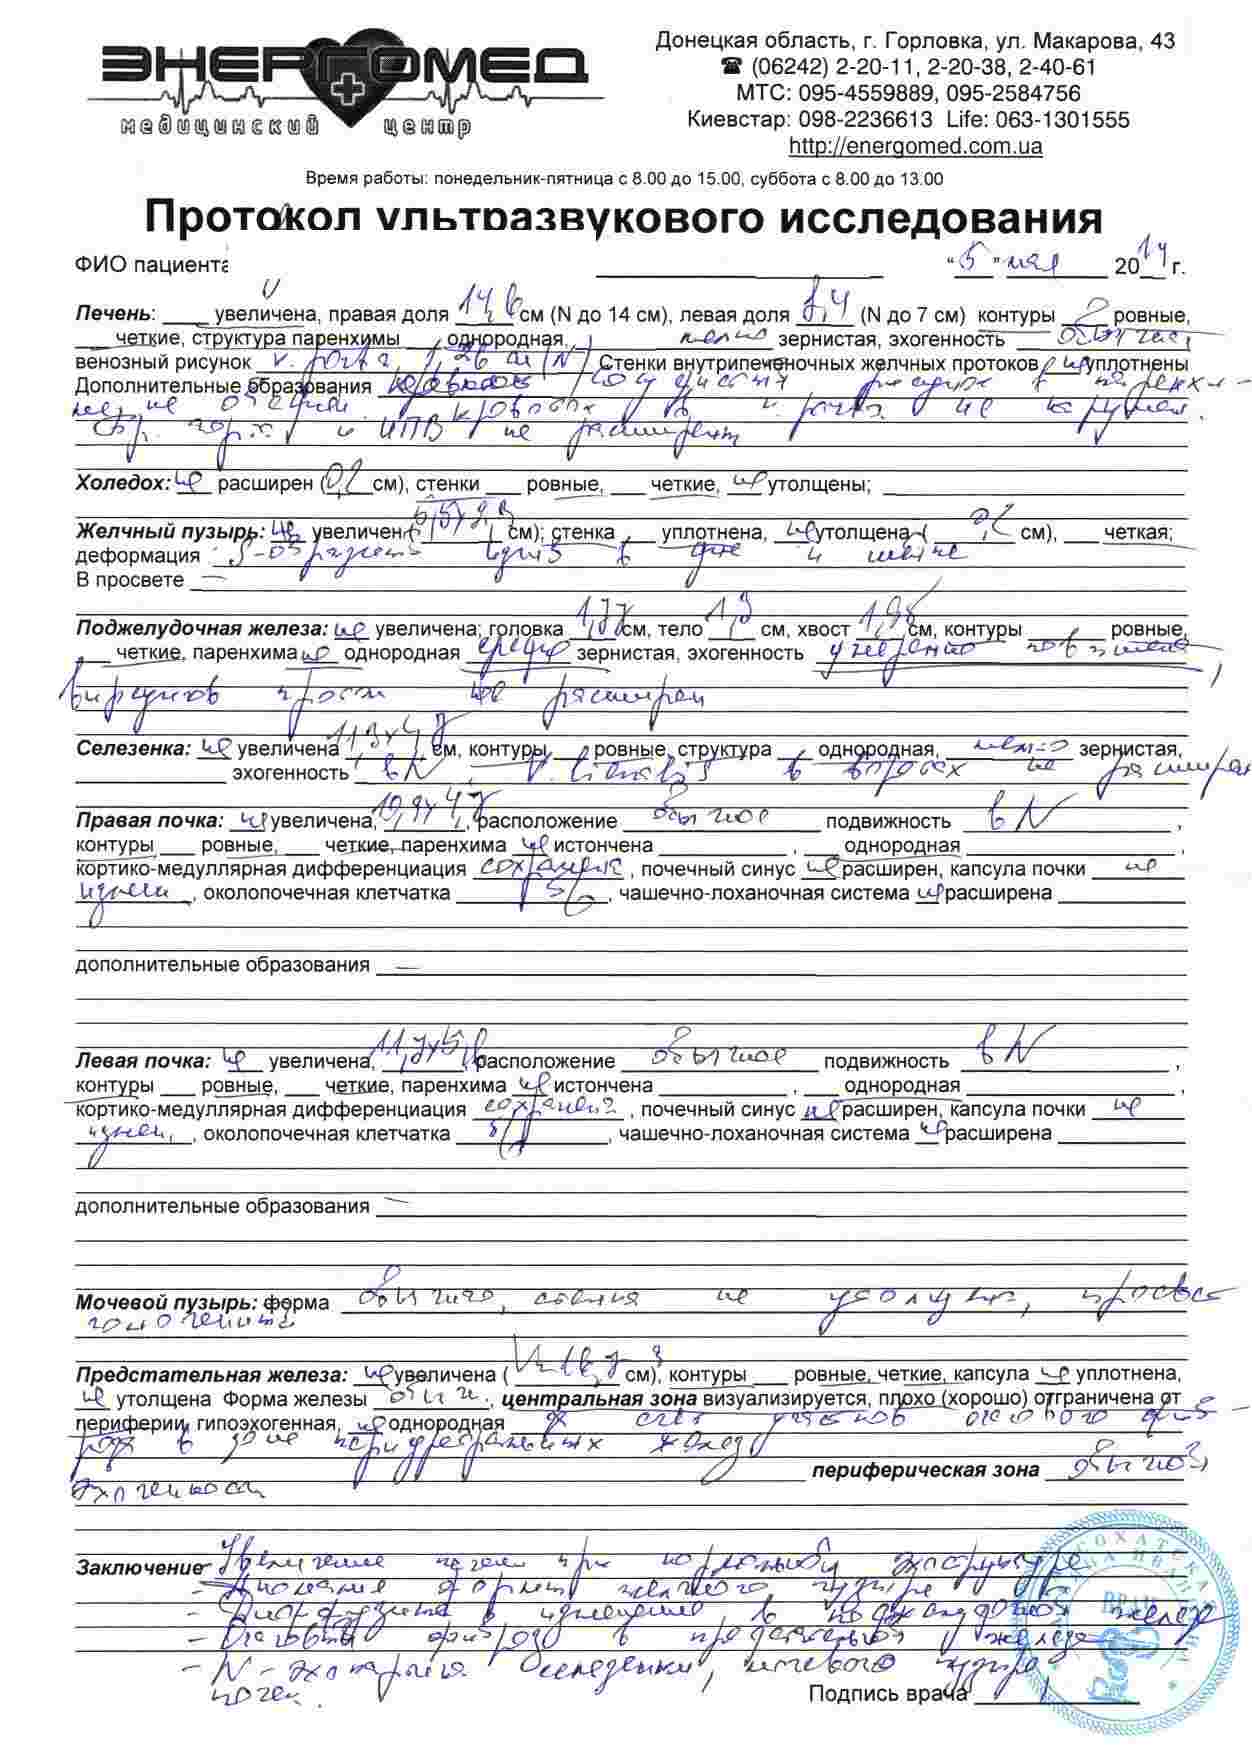 ЭНЕРГОМЕД
медицинский центр
Донецкая область, г. Горловка, ул. Макарова, 43
☎ (06242) 2-20-11, 2-20-38, 2-40-61
МТС: 095-4559889, 095-2584756
Киевстар: 098-2236613 Life: 063-1301555
http://energomed.com.ua
Время работы: понедельник-пятница с 8.00 до 15.00, суббота с 8.00 до 13.00
Протокол ультразвукового исследования
ФИО пациента "5" мая 2014 г.
Печень: увеличена, правая доля 14,6 см (N до 14 см), левая доля 8,4 (N до 7 см) контуры ровные,
четкие, структура паренхимы однородная, мелко зернистая, эхогенность обычная
венозный рисунок v. porta 1,26 см (N) Стенки внутрипеченочных желчных протоков не уплотнены
Дополнительные образования сосудистый рисунок в паренхи-
ме не кровоток в v. porta не
и НПВ не расширены
Холедох: не расширен (0,2 см), стенки ровные, четкие, не утолщены;
Желчный пузырь: не увеличен (5,5х2,3 см); стенка уплотнена, не утолщена ( 0,2 см), четкая;
деформация S-образный изгиб в дне и шейке
В просвете —
Поджелудочная железа: не увеличена; головка 1,77 см, тело 1,3 см, хвост 1,95 см, контуры ровные,
четкие, паренхима не однородная средне зернистая, эхогенность умеренно повышена,
вирсунгов проток не расширен
Селезенка: не увеличена 11,3х4,7 см, контуры ровные, структура однородная, мелко зернистая,
эхогенность в N, v. lienalis в воротах не расширена
Правая почка: не увеличена, 10,9х4,7, расположение обычное подвижность в N ,
контуры ровные, четкие, паренхима не истончена , однородная ,
кортико-медуллярная дифференциация сохранена , почечный синус не расширен, капсула почки не
измен. , околопочечная клетчатка б/о , чашечно-лоханочная система не расширена
дополнительные образования —
Левая почка: не увеличена, 11,7х5,6, расположение обычное подвижность в N ,
контуры ровные, четкие, паренхима не истончена , однородная ,
кортико-медуллярная дифференциация сохранена , почечный синус не расширен, капсула почки не
измен. , околопочечная клетчатка , чашечно-лоханочная система не расширена
дополнительные образования —
Мочевой пузырь: форма обычная, стенка не утолщена, просвет
гомогенный
Предстательная железа: не увеличена ( см), контуры ровные, четкие, капсула не уплотнена,
не утолщена Форма железы обычн., центральная зона визуализируется, плохо (хорошо) отграничена от
периферии, гипоэхогенная, не однородная за счет участков очагового фиб-
роза в зоне периуретральных желез
периферическая зона обычной
эхогенности
Заключение - Увеличение печени при нормальной эхоструктуре
- Аномалия формы желчного пузыря
- Диффузные изменения в поджелудочной железе
- Очаговый фиброз в предстательной железе
- N - эхокартина селезенки, мочевого пузыря
почек.
Подпись врача
ВРАЧ